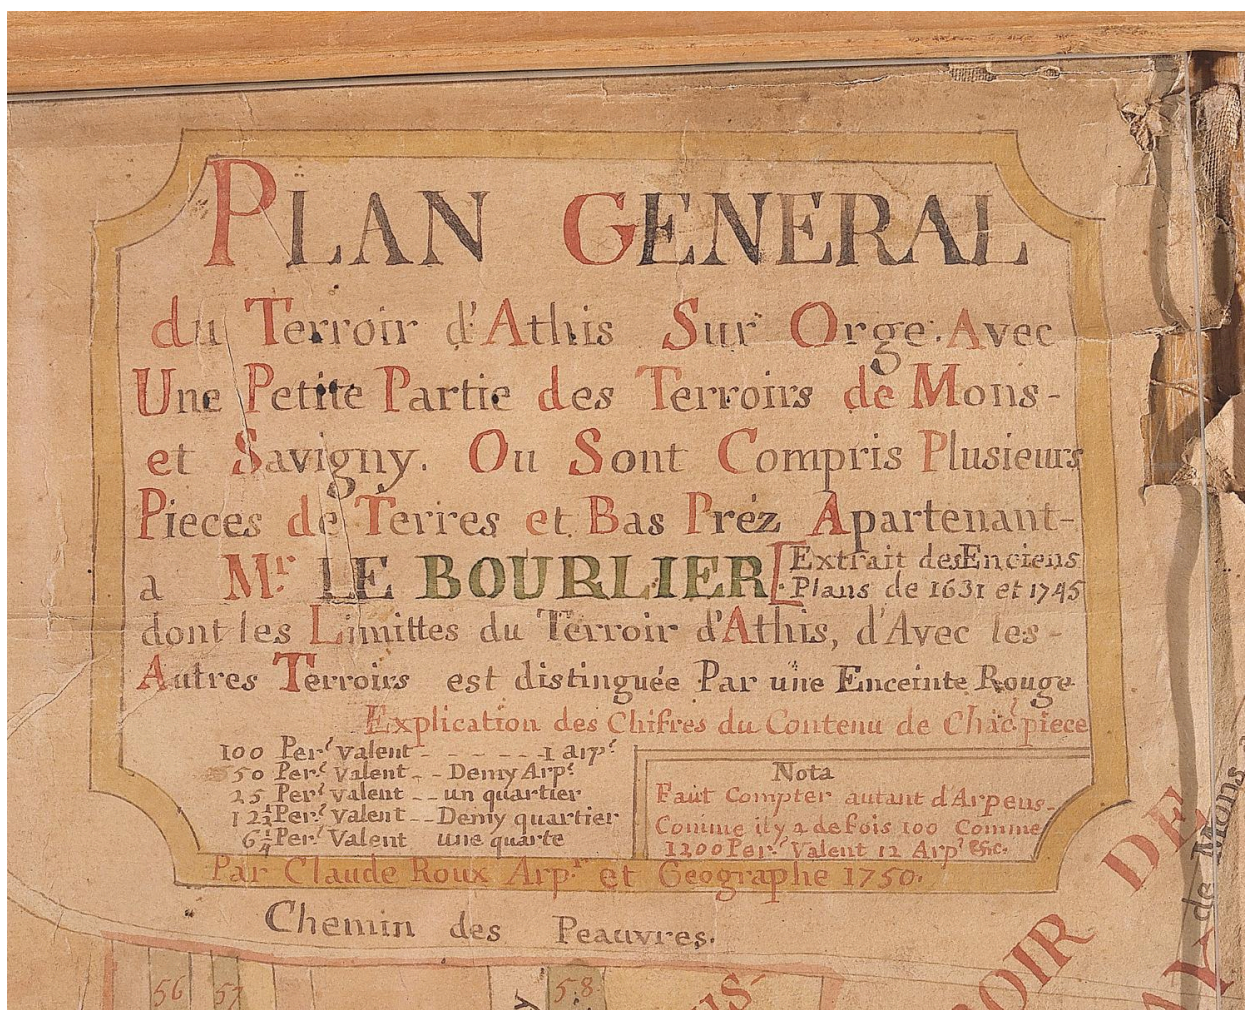 PLAN GENERAL
du Terroir d'Athis Sur Orge. Avec
Une Petite Partie des Terroirs de Mons-
et Savigny. Ou Sont Compris Plusieurs
Pieces de Terres et Bas Préz Apartenant-
a Mr. LE BOURLIER [Extrait des Enciens
Plans de 1631 et 1745
dont les Limittes du Terroir d'Athis, d'Avec les-
Autres Terroirs est distinguée Par une Enceinte Rouge
Explication des Chifres du Contenu de Chac. piece
100 Per. valent - - - - - 1 arp.
50 Per. Valent - - Demy Arp.
25 Per. Valent - - un quartier
12 1/2 Per. Valent - - Demy quartier
6 1/4 Per. Valent une quarte
Nota
Faut Compter autant d'Arpens-
Comme il y a de fois 100 Comme
1200 Per. Valent 12 Arp. &c.
Par Claude Roux Arp. et Geographe 1750.
Chemin des Peauvres.
56 57 58
OIR DE
de Mons